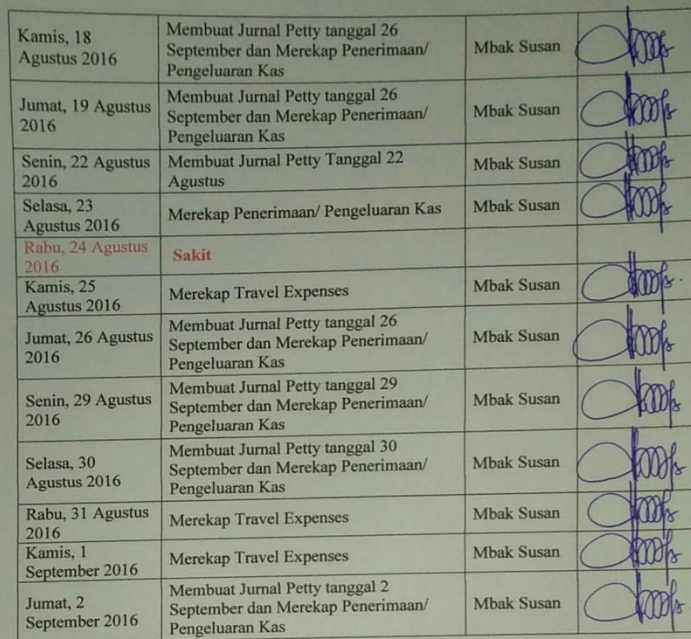 Kamis, 18
Agustus 2016
Membuat Jurnal Petty tanggal 26
September dan Merekap Penerimaan/
Pengeluaran Kas
Mbak Susan
Jumat, 19 Agustus
2016
Membuat Jurnal Petty tanggal 26
September dan Merekap Penerimaan/
Pengeluaran Kas
Mbak Susan
Senin, 22 Agustus
2016
Membuat Jurnal Petty Tanggal 22
Agustus
Mbak Susan
Selasa, 23
Agustus 2016
Merekap Penerimaan/ Pengeluaran Kas
Mbak Susan
Rabu, 24 Agustus
2016
Sakit
Kamis, 25
Agustus 2016
Merekap Travel Expenses
Mbak Susan
Jumat, 26 Agustus
2016
Membuat Jurnal Petty tanggal 26
September dan Merekap Penerimaan/
Pengeluaran Kas
Mbak Susan
Senin, 29 Agustus
2016
Membuat Jurnal Petty tanggal 29
September dan Merekap Penerimaan/
Pengeluaran Kas
Mbak Susan
Selasa, 30
Agustus 2016
Membuat Jurnal Petty tanggal 30
September dan Merekap Penerimaan/
Pengeluaran Kas
Mbak Susan
Rabu, 31 Agustus
2016
Merekap Travel Expenses
Mbak Susan
Kamis, 1
September 2016
Merekap Travel Expenses
Mbak Susan
Jumat, 2
September 2016
Membuat Jurnal Petty tanggal 2
September dan Merekap Penerimaan/
Pengeluaran Kas
Mbak Susan